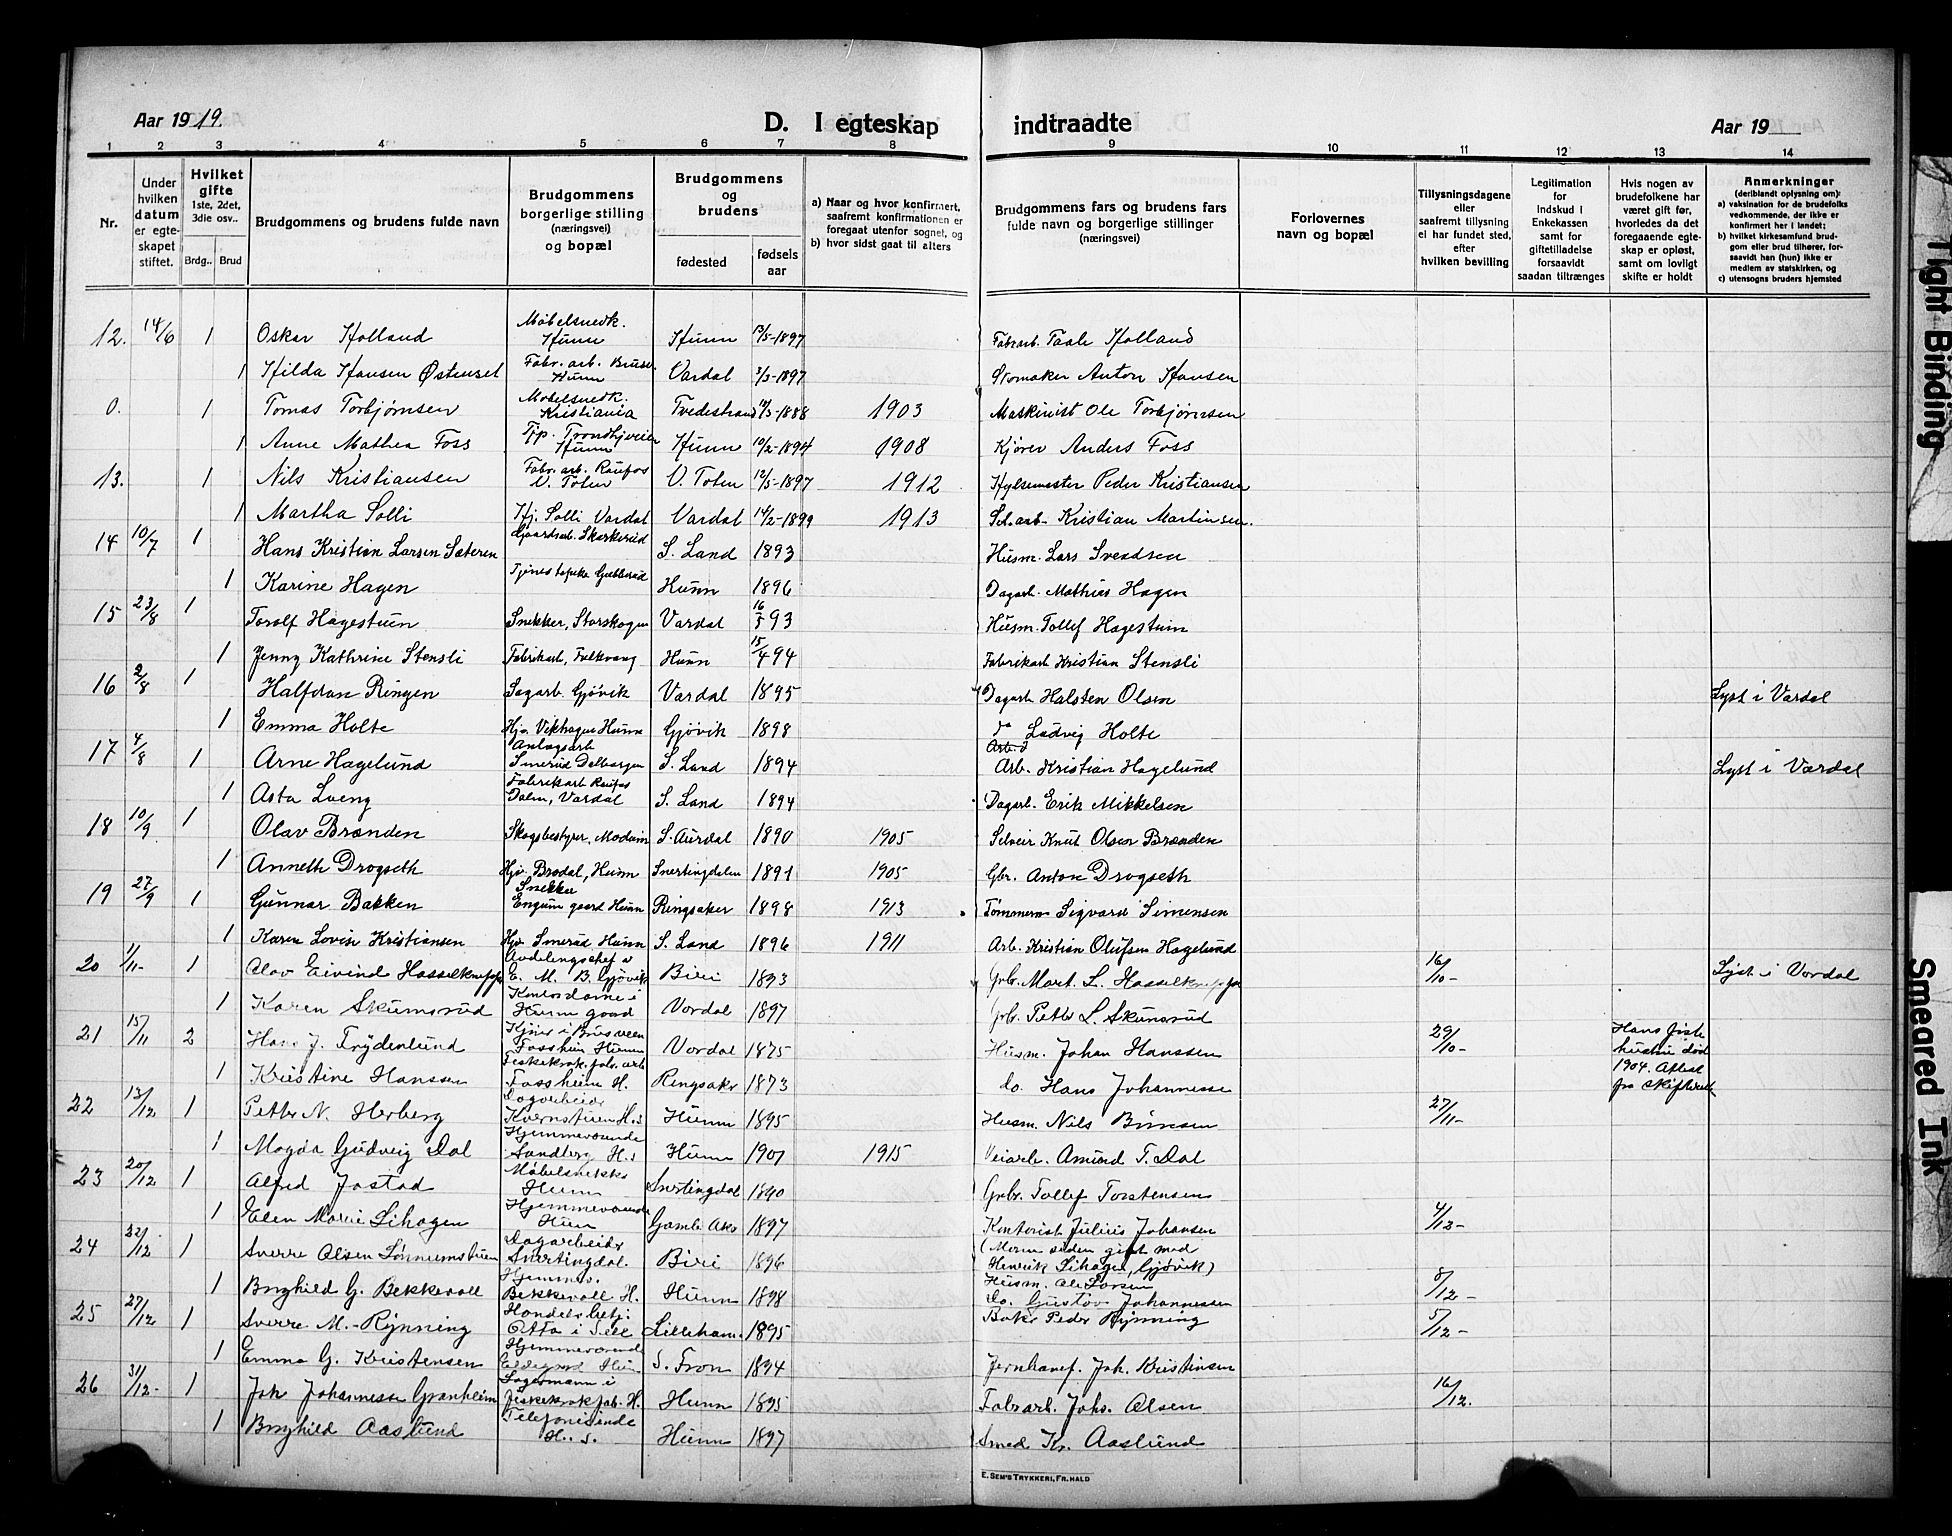 Aar 1919.
D. I egteskap indtraadte
Aar 19
1 2 3 4 5 6 7 8 9 10 11 12 13 14
Nr.
Under hvilken datum er egteskapet stiftet.
Hvilket gifte 1ste, 2det, 3die osv..
Brdg.. Brud
Brudgommens og brudens fulde navn
Brudgommens borgerlige stilling (næringsvei) og bopæl
Brudgommens og brudens
fødested
fødsels aar
a) Naar og hvor konfirmert, saafremt konfirmationen er foregaat utenfor sognet, og
b) hvor sidst gaat til alters
Brudgommens fars og brudens fars fulde navn og borgerlige stillinger (næringsvei)
Forlovernes navn og bopæl
Tillysningsdagene eller saafremt tillysning ei har fundet sted, efter hvilken bevilling
Legitimation for Indskud i Enkekassen samt for giftetilladelse forsaavidt saadan tiltrænges
Hvis nogen av brudefolkene har været gift før, hvorledes da det foregaaende egteskap er opløst, samt om lovligt skifte er holdt
Anmerkninger (deriblandt oplysning om):
a) vaksination for de brudefolks vedkommende, der ikke er konfirmert her i landet;
b) hvilket kirkesamfund brudgom eller brud tilhører, forsaavidt han (hun) ikke er medlem av statskirken, og
c) utensogns bruders hjemsted
12. 14/6 1 Oskar Holland Møbelsnedk. Hunn Hunn 13/5-1897 Fabrarb. Taale Holland
1 Hilda Hansen Østenset Fabr. arb. Hunn Vardal 3/3-1897 Skomaker Anton Hansen
0. 1 Tomas Torbjørnsen Møbelsnedk. Kristiania Tvedestrand 1888 1903 Maskinist Ole Torbjørnsen
1 Anne Mathea Foss Tjp. Trondhjveien Hunn Hunn 10/2-1894 1908 Kjører Anders Foss
13. 1 Nils Kristiansen Fabr. arb. Raufos V. Toten V. Toten 12/5-1897 1912 Hylsemester Peder Kristiansen
1 Martha Solli Hj. Solli Vardal Vardal 14/2-1899 1913 Kristian Martinsen.
14 10/7 1 Hans Kristian Larsen Sæteren Gaardsarb. Skarkerud S. Land 1893 Husm. Lars Svendsen
1 Karine Hagen Hunn 1896 Dagarb. Mathias Hagen
15 23/8 1 Torolf Hagestuen Snekker, Storskogen Vardal 93 Husm. Tollef Hagestuen
1 Jenny Kathrine Stensli Fabrikarb., Folkvang Hunn 15/4 94 Fabrikarb Kristian Stensli
16 2/8 1 Halfdan Ringen Sagarb. Gjøvik Vardal 1895 Dagarb Halsten Olsen Lyst i Vardal
1 Emma Holte Hjv. Vikhagen Hunn Gjøvik 1898 Ludvig Holte
17 4/8 1 Arne Hagelund Anlægsarb Smerud Dalborgen S. Land 1894 Arb. Kristian Hagelund Lyst i Vardal
1 Asta Loeng Fabrikarb Raufos Dalen, Vardal S. Land 1894 Dagarb. Erik Mikkelsen
18 10/9 1 Olav Brænden Skogbestyrer, Modum S. Aurdal 1890 1905 Selveir Knut Olsen Brænden
1 Anneth Drogseth Hjv. Brodal, Hunn Snertingdalen 1891 1905 Gbr. Anton Drogseth
19 27/9 1 Gunnar Bakken Snekker Engum gaard Hunn Ringsaker 1898 1913 Tømmerm Sigvard Simensen
1 Karen Lovise Kristiansen Hjv. Smerud Hunn S. Land 1896 1911 Arb. Kristian Olufsen Hagelund
20 1/11- 1 Olav Eivind Hasselknippe Avdelingschef v E. M. B. Gjøvik Biri 1893 Grb. Mart. L. Hasselknippe 16/10- Lyst i Vardal
1 Karen Skumsrud Kontordame i Hunn gaard Vardal 1897 Grb. Petter L. Skumsrud
21 15/11 2 Hans J. Frydenlund Fossheim Hunn Vardal 1875 Husm. Johan Hanssen 29/10- Hans første hustru død 1904. Attest fra skifterett
1 Kristine Hanssen Feskekrok. fabr. arb Fossheim H. Ringsaker 1873 Do. Hans Johannesse
22 13/12 1 Petter N. Herberg Dagarbeider Kvernstuen H.s Hunn 1895 Husm. Nils 27/11-
1 Magda Gudveig Dal Hjemmeværende Sandberg H.s Hunn 1901 1915 Veiarb. Amund T. Dal
23 20/12 1 Alfred Jostad Møbelsnekker Hunn Snertingdal 1890 Grbr. Tollef Torstensen
1 Elen Marie Lihagen Hjemmeværende Hunn Gamle Aker 1897 Kontorist Julius Johansen 4/12-
(Moren siden gift med Henrik Lihagen, Gjøvik)
24 22/12 1 Sverre Olsen Sønnumstuen Dagarbeider Snertingdal. Biri 1896 Husm. Ole Larsen 8/12-
1 Borghild G. Bekkevoll Hjemmev. Bekkevoll H. Hunn 1898 Do. Gustav Johannessen
25 27/12 1 Sverre M. Rynning Handelsbetj. Otta i Sell Lilleham. 1895 Baker Peder Rynning 5/12-
1 Emma G. Kristensen Hjemmeværende Hunn S. Fron 1894 Jernbanef. Joh. Kristensen
26 31/12- 1 Joh Johannesse Granheim Lagermann i Feskekrokfab. H. Hunn 1895 Fabrarb. Johs. Olsen 16/12.
1 Borghild Aaslund Telefonisende H.. s. Hunn 1897 Smed Kr. Aaslund
E. SEM'S TRYKKERI, FR. HALD
Tight Binding
Smeared Ink